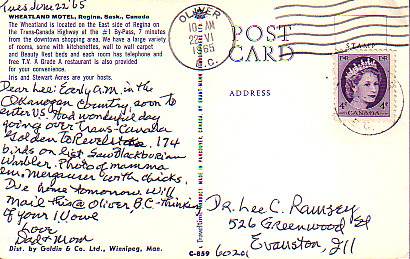 Tues June 22 '65
WHEATLAND MOTEL, Regina, Sask., Canada
The Wheatland is located on the East side of Regina on
the Trans-Canada Highway at the #1 By-Pass, 7 minutes
from the downtown shopping area. We have a large variety of
rooms, some with kitchenettes, wall to wall carpet
and Beauty Rest beds and each room has telephone and
free T.V. A Grade A restaurant is also provided
for your convenience.
Iris and Stewart Acres are your hosts.
Dear Lee: Early a.m. in the
Okanogan Country, soon to
enter US. Had wonderful day
going over Trans-Canada
Golden to Revelstoke. 174
birds on list. Saw Blackburnian
Warbler. Photo of mamma
Am. Merganser with chicks.
Due home tomorrow. Will
mail this @ Oliver, B.C. Thinking
of your
Love
Dad & Mom
Dist. by Goldin & Co. Ltd., Winnipeg, Man.
POST
CARD
ADDRESS
OLIVER
10 AM
22 VI
1965
B.C.
STAMP
4¢ 4¢
Dr. Lee C. Ramsey
526 Greenwood Bl
Evanston, Ill
60201
C-859